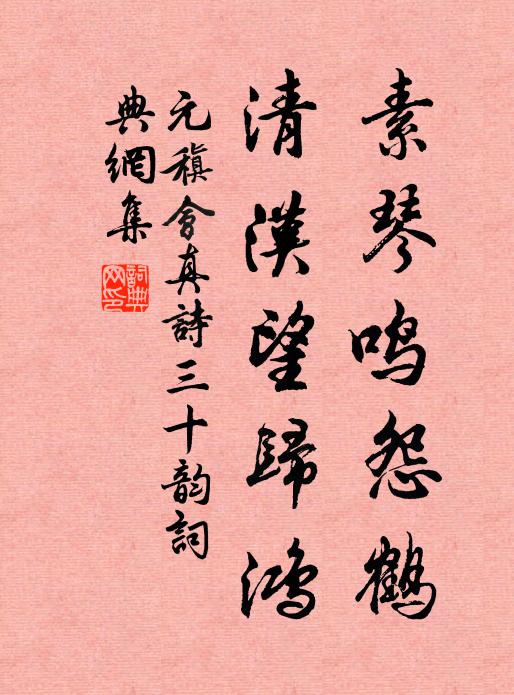 素琴鸣怨鹤
清漢望歸鴻
元稹會真詩三十韵詞
典網集
詞典網印